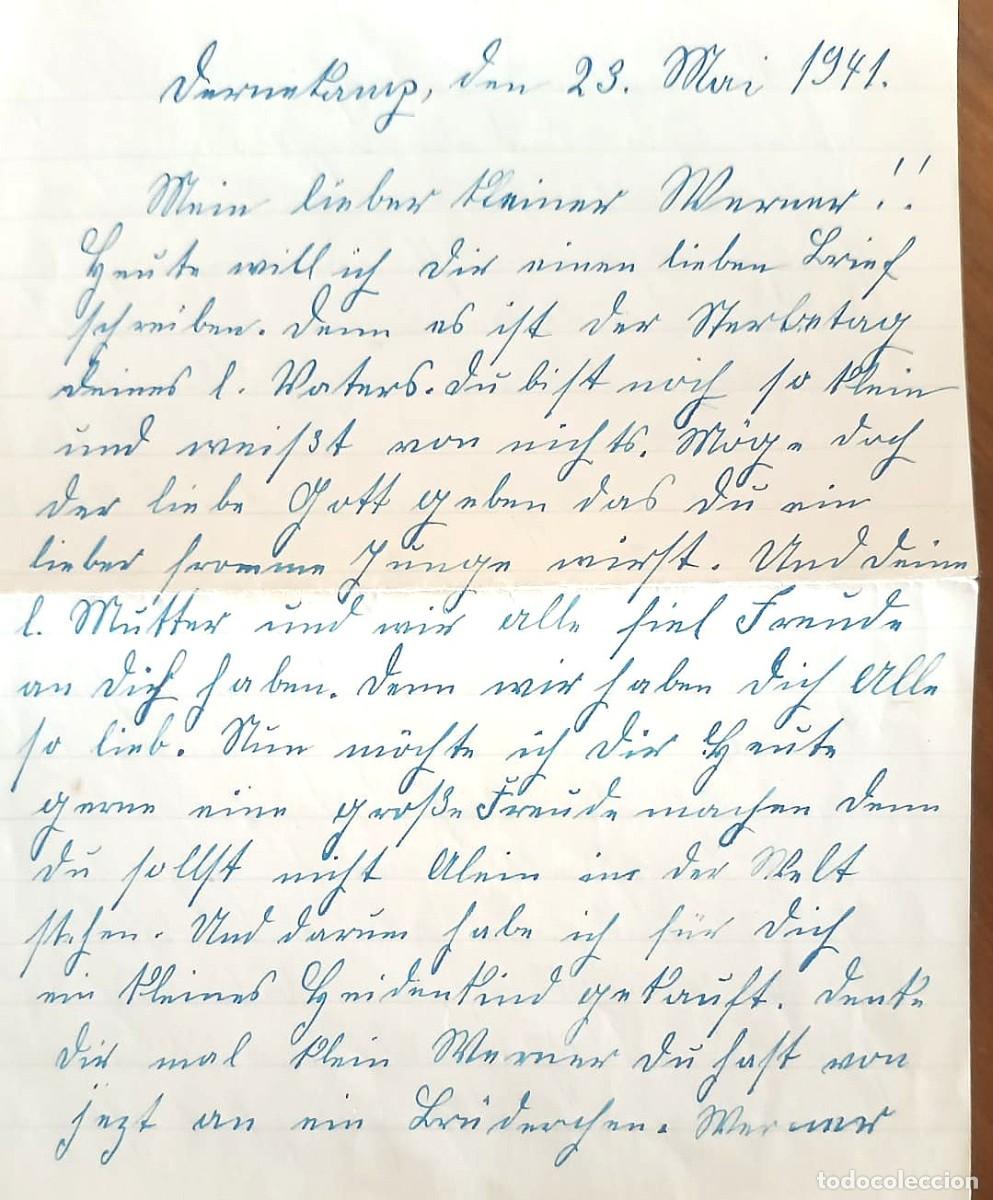 Dernekamp, den 23. Mai 1941.
Mein lieber kleiner Werner!!
Heute will ich Dir einen lieben Brief
schreiben. Denn es ist der Sterbetag
deines l. Vaters. Du bist noch so klein
und weißt von nichts. Möge doch
der liebe Gott geben das Du ein
lieber fromme Junge wirst. Und deine
l. Mutter und wir alle fiel Freude
an Dich haben. Denn wir haben Dich Alle
so lieb. Nun möchte ich Dir Heute
gerne eine große Freude machen denn
Du sollst nicht Alein in der Welt
stehen. Und darum habe ich für Dich
ein kleines Heidenkind gekauft. Denke
Dir mal klein Werner Du hast von
jezt an ein Brüderchen. Werner
todocoleccion